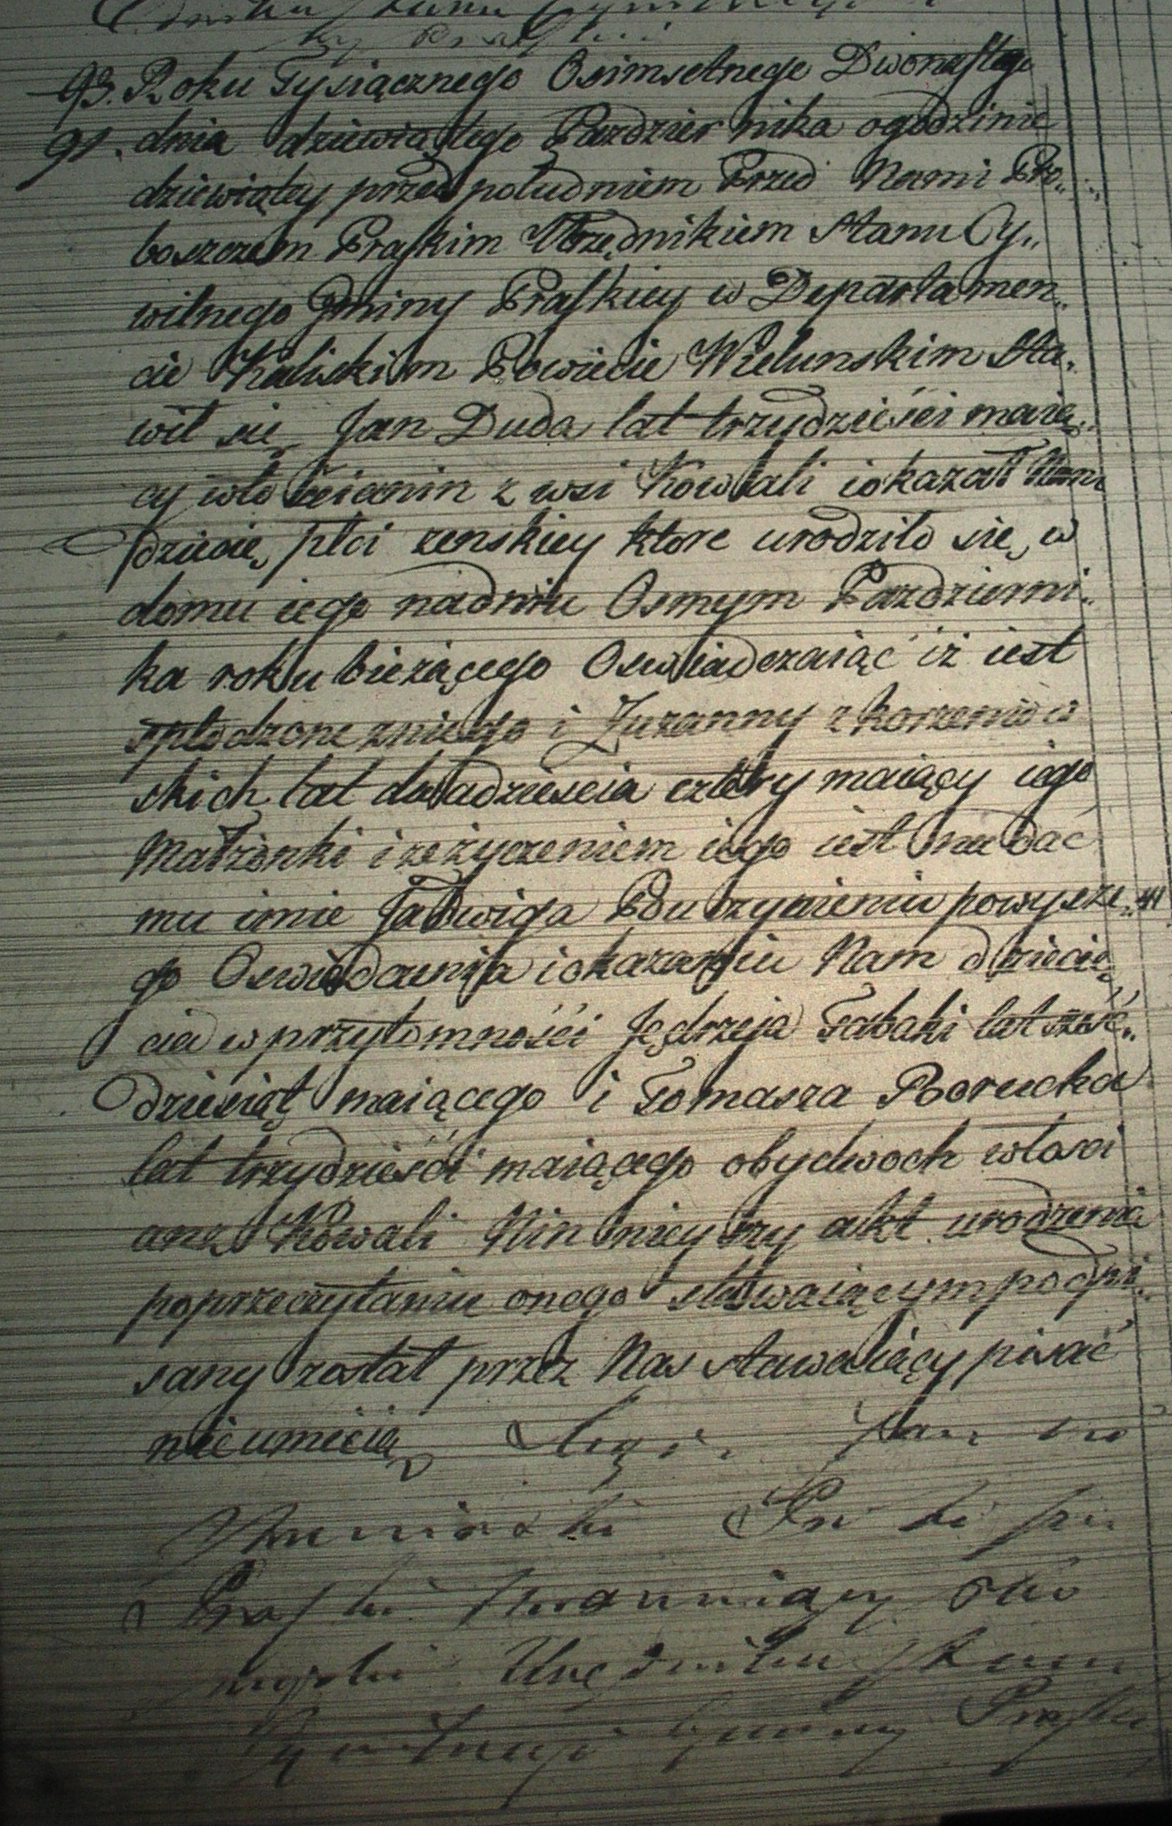 93. Roku Tysiącznego Osimsetnego Dwonastego
91. dnia dziewiątego Pazdziernika ogodzinie
dziewiątey przed południem Przed Nami Pro..
boszczem Praskim Urzędnikiem Stanu Cy..
wilnego Gminy Praskiey w Departamen..
cie Kaliskim Powiecie Wielunskim Sta.
wił się Jan Duda lat trzydzieści maią..
cy włoscianin z wsi Kowali iokazał Nam
dziecie płci zenskiey ktore urodziło się w
domu iego nadniu Osmym Pazdzierni..
ka roku bieżącego Oswiadczaiąc iż iest
spłodzone zniego i Zuzanny z korzeniow
skich lat dwadziescia cztery maiący iego
Małżonki i zeżyczeniem iego iest nadać
mu imie Jadwiga Pouczynieniu powyższe..
go Oswiadczenia iokazaniu Nam dziecię
cia w przytomności Jędrzeja Tabaki lat sześć..
dziesiąt maiącego i Tomasza Borucka
lat trzydzieści maiącego obydwoch włosci
an z Kowali Ninnieyszy akt urodzenia
poprzeczytaniu onego stawaiącym podpi..
sany został przez Nas stawaiący pisać
nieumieią
Praski
Urzędnik Stanu
Cywilnego Gminy Praski